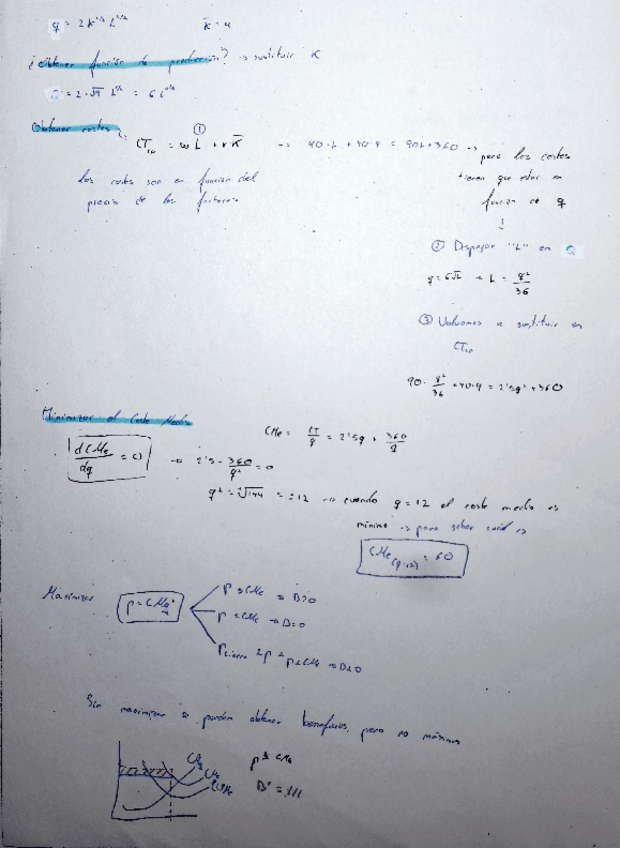 q = 2K^1/2 L^1/2
¿Obtener función de producción? → sustituir K
= 2·√9 L^1/2 = 6L^1/2
Obtener costes
①
CT = wL + rK̄ → 90·L + 40·9 = 90L + 360 →
para los costes
tienen que estar en
función de q
Los costes son en función del
precio de los factores
② Despejar "L" en Q
q = 6√L = L = q²/36
③ Volvemos a sustituir en
CT
90 · q²/36 + 40·9 = 2'5q² + 360
Minimizar el Coste Medio
CMe = CT/q = 2'5q + 360/q
dCMe/dq = 0 → 2'5 - 360/q² = 0
q² = √144 = ±12 → cuando q = 12 el coste medio es
mínimo → para saber cuál es
CMe(q=12) = 60
Maximizar
B>0
p = CMe → B=0
Sin maximizar se pueden obtener beneficios, pero no máximos